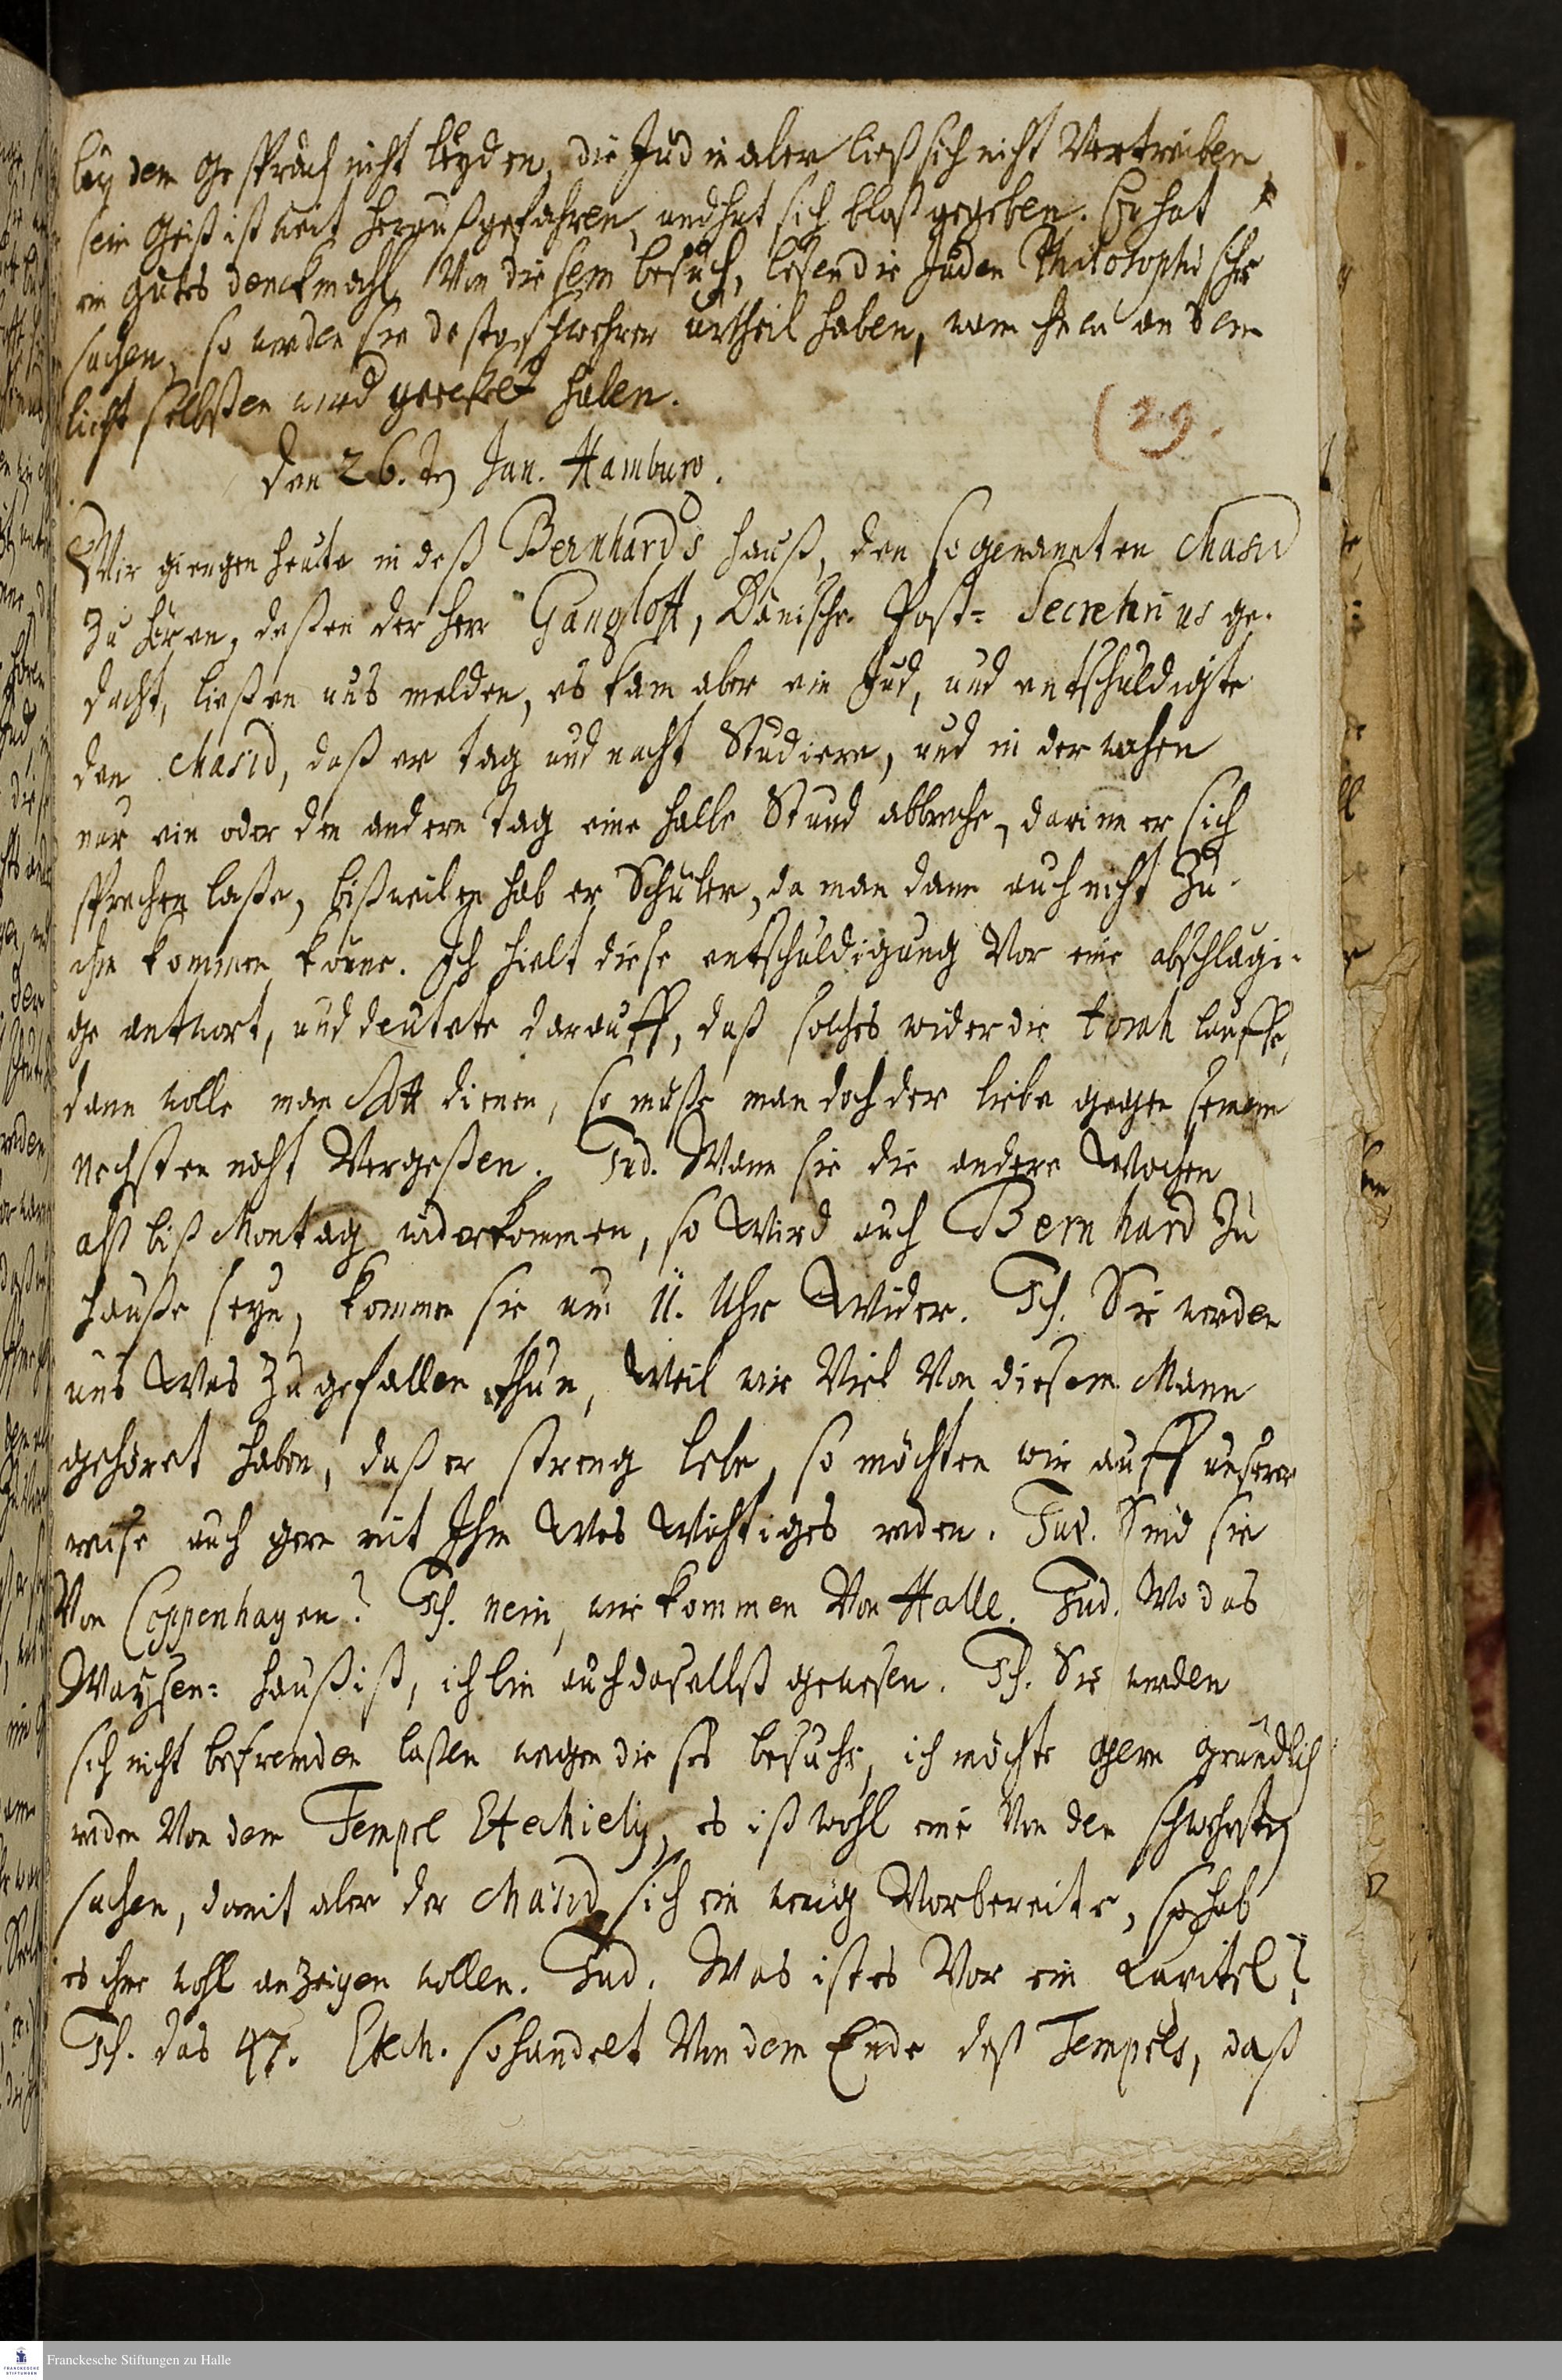 bey dem Gespräch nicht leyden, die Jüdin aber ließ sich nicht Vertreiben,
sein Geist ist weit heraußgefahren, und hat sich bloß gegeben. Er hat
ein gutes denckmahl Von diesem besuch, lesen die Juden Philosophische
sachen, so werden sie desto schwehrer urtheil haben, wann sie an dem
licht selbsten
haben.
(29.
den 26. ten Jan. Hamburg.
Wir giengen heute in deß Bernhards hauß, den so genannten Chasid
zu hören, deßen der Herr Gangloff, Dänischer Post- Secretarius ge-
dacht, ließen uns melden, es kam aber ein Jud, und entschuldigte
den Chasid, daß er tag und nacht Studiere, und in der wochen
nur ein oder den andern tag eine halbe Stund abbreche, darinn er sich
sprechen laße, bißweilen hab er Schüler, da man dann auch nicht zu
ihm kommen könne. Ich hielt diese entschuldigung Vor eine abschlägi-
ge antwort, und deutete darauff, daß solches wider die torah lauffe,
dann wolle man Gott dienen, so muße man doch der liebe gegen seinem
nechsten nicht Vergeßen. Jud. Wann sie die andere Wochen
alß biß Montag widerkommen, so Wird auch Bernhard zu
hauße seyn, kommen sie um 11. Uhr Wider. Ich. Sie werden
uns Was zu gefallen thun, Weil wir Viel Von diesem Mann
gehöret haben, daß er streng lebe, so möchten wir auff unserer
reise auch gern mit Ihm Was Wichtiges reden. Jud. Sind sie
Von Coppenhagen? Ich. nein, wir kommen Von Halle. Jud. Wo das
Waysen- hauß ist, ich bin auch daselbst gewesen. Ich. Sie werden
sich nicht befremden laßen wegen dieses besuchs, ich möchte gern gründlich
reden Von dem Tempel Ezechielis, es ist wohl eine Von den schwersten
sachen, damit aber der Chasid sich ein wenig Vorbereite, so hab
es ihm wohl anzeigen wollen. Jud. Was ist es Vor ein Capitel?
Ich. das 47. Ezech. so handelt Von dem Ende deß Tempels, daß
Franckesche Stiftungen zu Halle